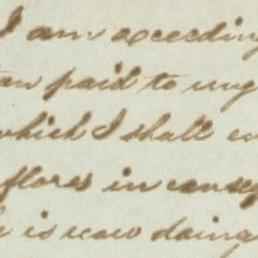 I am exceeding
paid to my
which I shall en
flores in conseq
is now doing